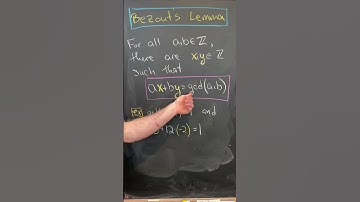 Bezout's Lemma
For all a,b∈ℤ,
there are x,y∈ℤ
such that
ax+by=gcd(a,b)
Ex and
12(-2)=1